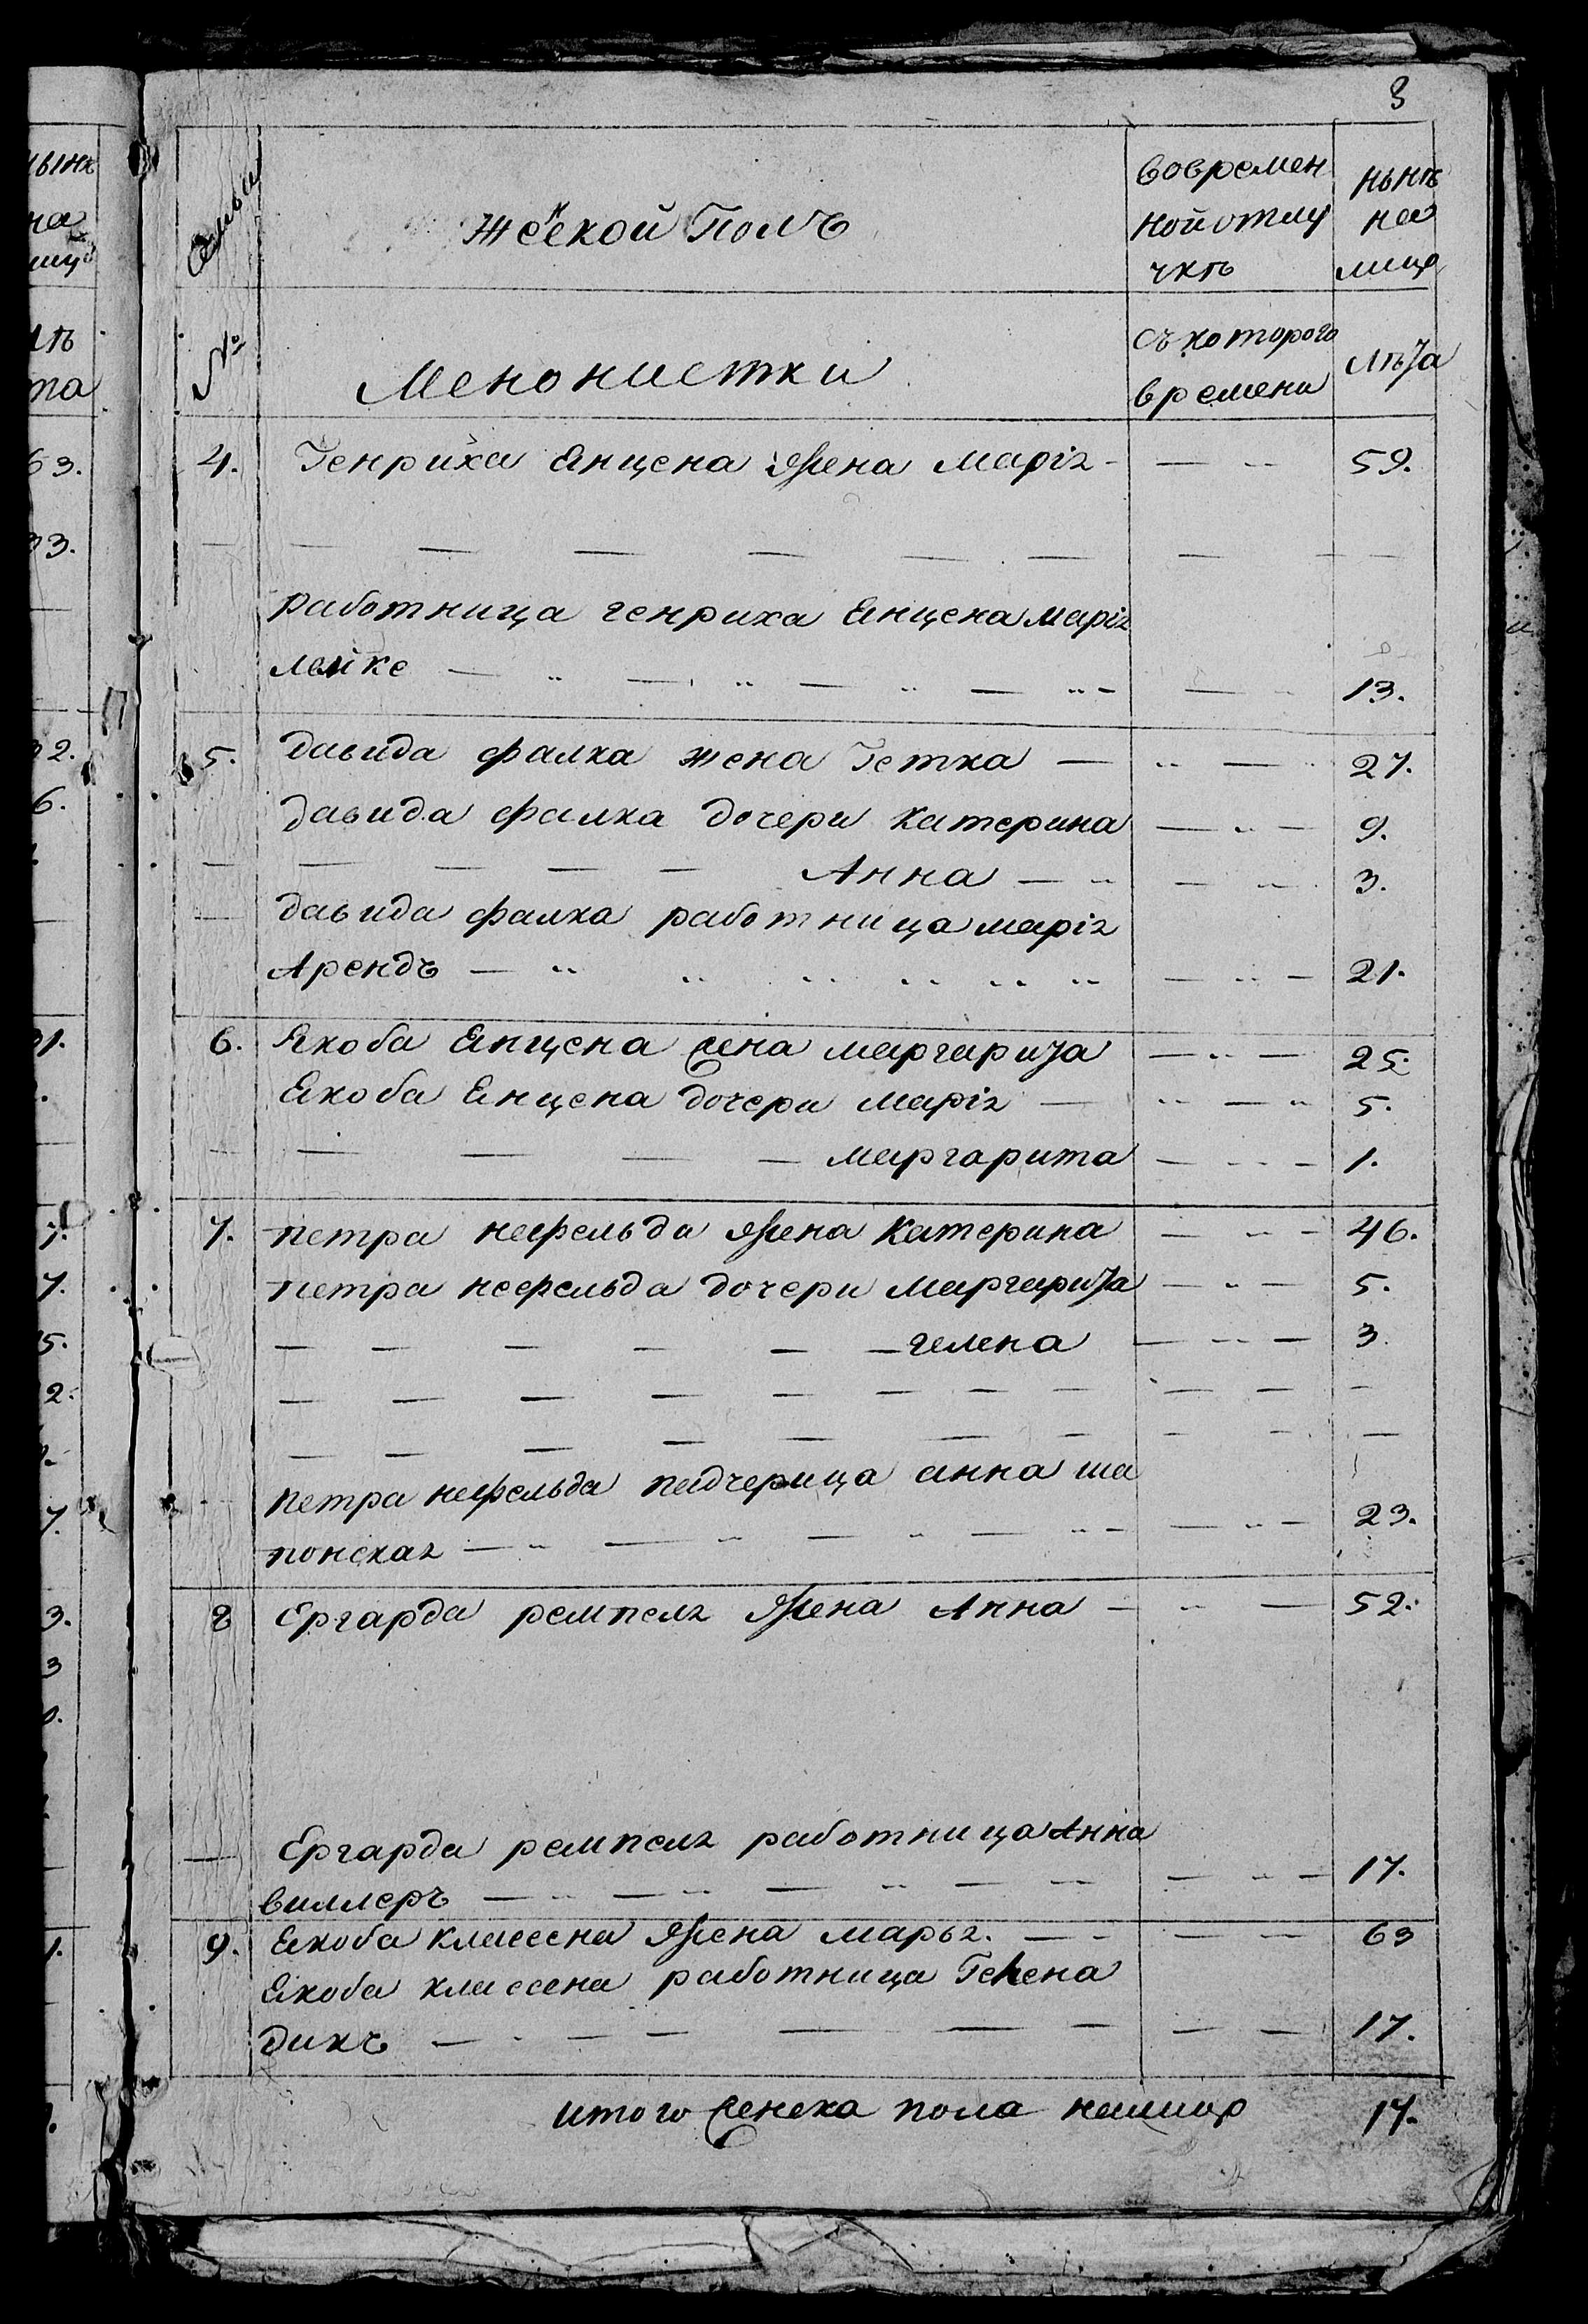 3
Семьи
женской Полъ
вовремен
ной отлу
чкѣ
нынѣ
на
лицо
№
Менонистки
съ котораго
времени
лѣта
4. Генриха Янцена жена марія — 59.
работница генриха Янцена марія
лемке — 13.
5. давида фалка жена Гетка — 27.
давида фалка дочери катерина — 9.
Анна — 3.
давида фалка работница марія
Арендъ — 21.
6. Якоба Янцена жена маргарита — 25.
Якоба Янцена дочери марія — 5.
маргарита — 1.
7. петра нефельда жена катерина — 46.
петра нефельда дочери маргарита — 5.
гелена — 3.
петра нефельда падчерица анна ша
понская — 23.
8 Ергарда ремпеля жена Анна — 52.
Ергарда ремпеля работница Анна
виллеръ — 17.
9. Якоба классена жена марья. — 63
Якоба классена работница Гелена
дикъ — 17.
итого женска пола налицо 17.